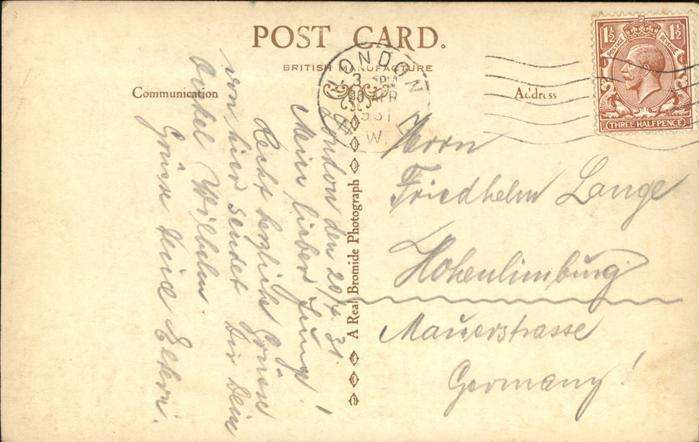 POST CARD.
BRITISH MANUFACTURE
Communication
Address
A Real Bromide Photograph
LONDON
W.
1½ 1½
THREE HALFPENCE
London den 20/4. 31.
Mein lieber Junge!
Recht herzliche Grüsse
von hier sendet Dir Dein
Onkel Wilhelm.
Grüsse Deine Eltern.
Herrn
Friedhelm Lange
Hohenlimburg
Mauerstrasse
Germany!